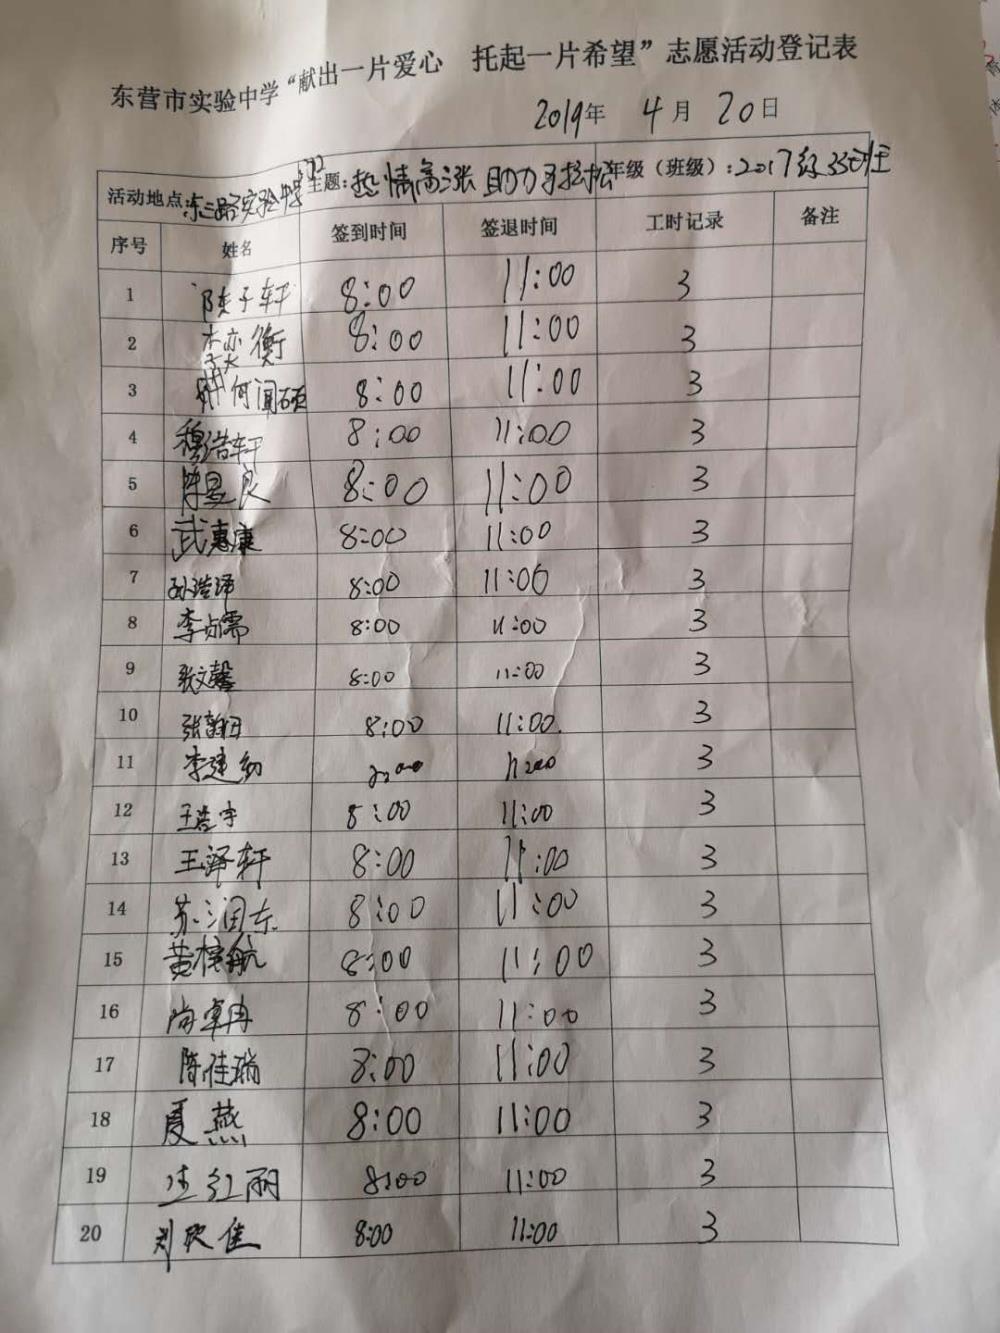 东营市实验中学“献出一片爱心 托起一片希望”志愿活动登记表
2019年 4月 20日
活动地点:东三路实验中学 主题:热情高涨 助力 年级（班级）:2017级33班
序号 姓名 签到时间 签退时间 工时记录 备注
1 陈子轩 8:00 11:00 3
2 栾亦衡 8:00 11:00 3
3 何闻硕 8:00 11:00 3
4 穆浩轩 8:00 11:00 3
5 陈昱良 8:00 11:00 3
6 武惠康 8:00 11:00 3
7 孙浩译 8:00 11:00 3
8 李贞儒 8:00 11:00 3
9 张文馨 8:00 11:00 3
10 张 8:00 11:00. 3
11 李建勋 3
12 王浩宇 8:00 11:00 3
13 王泽轩 8:00 11:00 3
14 苏润东 8:00 11:00 3
15 黄梓航 8:00 11:00 3
16 尚卓冉 8:00 11:00 3
17 陈佳瑞 8:00 11:00 3
18 夏燕 8:00 11:00 3
19 红丽 8:00 11:00 3
20 刘欣佳 8:00 11:00 3